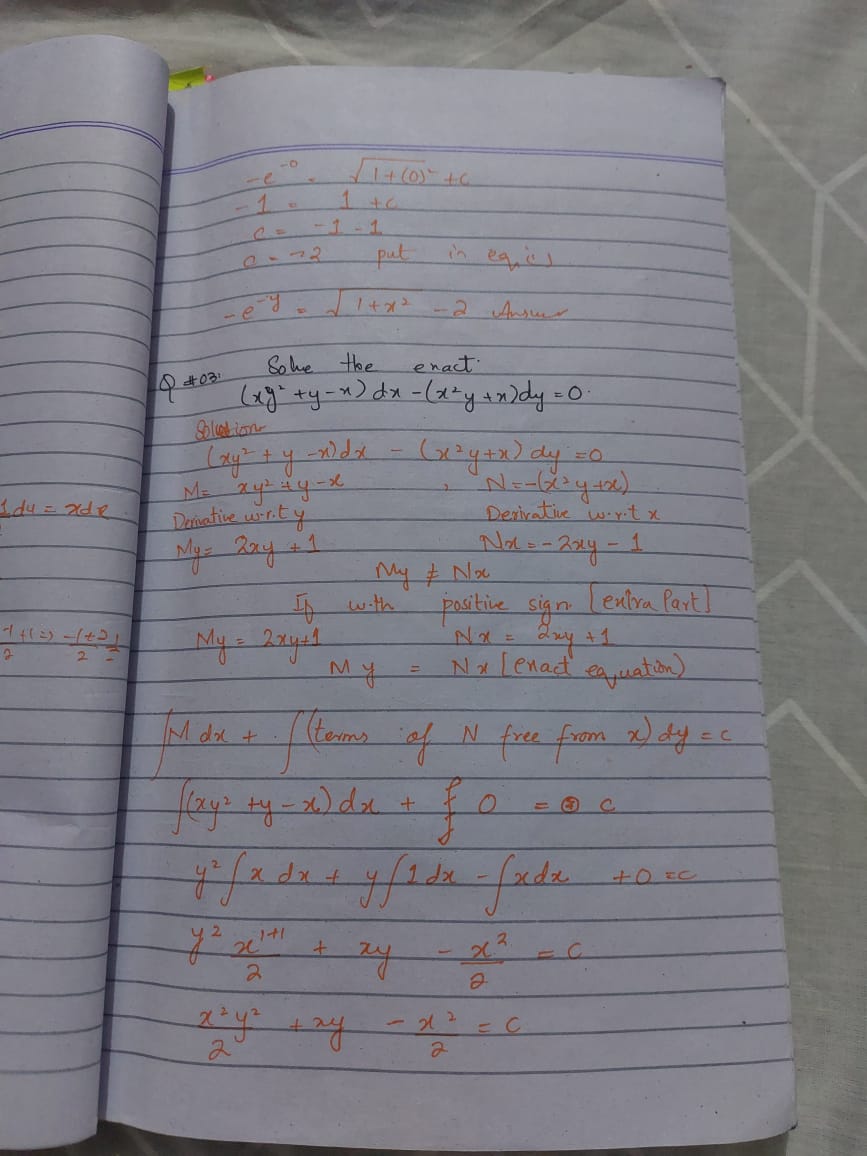 -e⁻⁰ = √1+(0)² + c
-1 = 1 + c
c = -1 - 1
c = -2 put in eq,
-e⁻ʸ = √1+x² - 2 Answer
Q #03: Solve the exact.
(xy² + y - x) dx - (x²y + x) dy = 0.
Solution
(xy² + y - x) dx - (x²y + x) dy = 0
M = xy² + y - x , N = -(x²y + x)
Derivative w.r.t y Derivative w.r.t x
My = 2xy + 1 Nx = - 2xy - 1
My ≠ Nx
If with positive sign [extra Part]
My = 2xy+1 Nx = 2xy + 1
My = Nx [exact equation)
1 dy = x dx
∫M dx + ∫(terms of N free from x) dy = c
∫(xy² + y - x) dx + ∫ 0 = c
y² ∫x dx + y ∫1 dx - ∫x dx + 0 = c
y² x¹⁺¹/2 + xy - x²/2 = c
x²y²/2 + xy - x²/2 = c